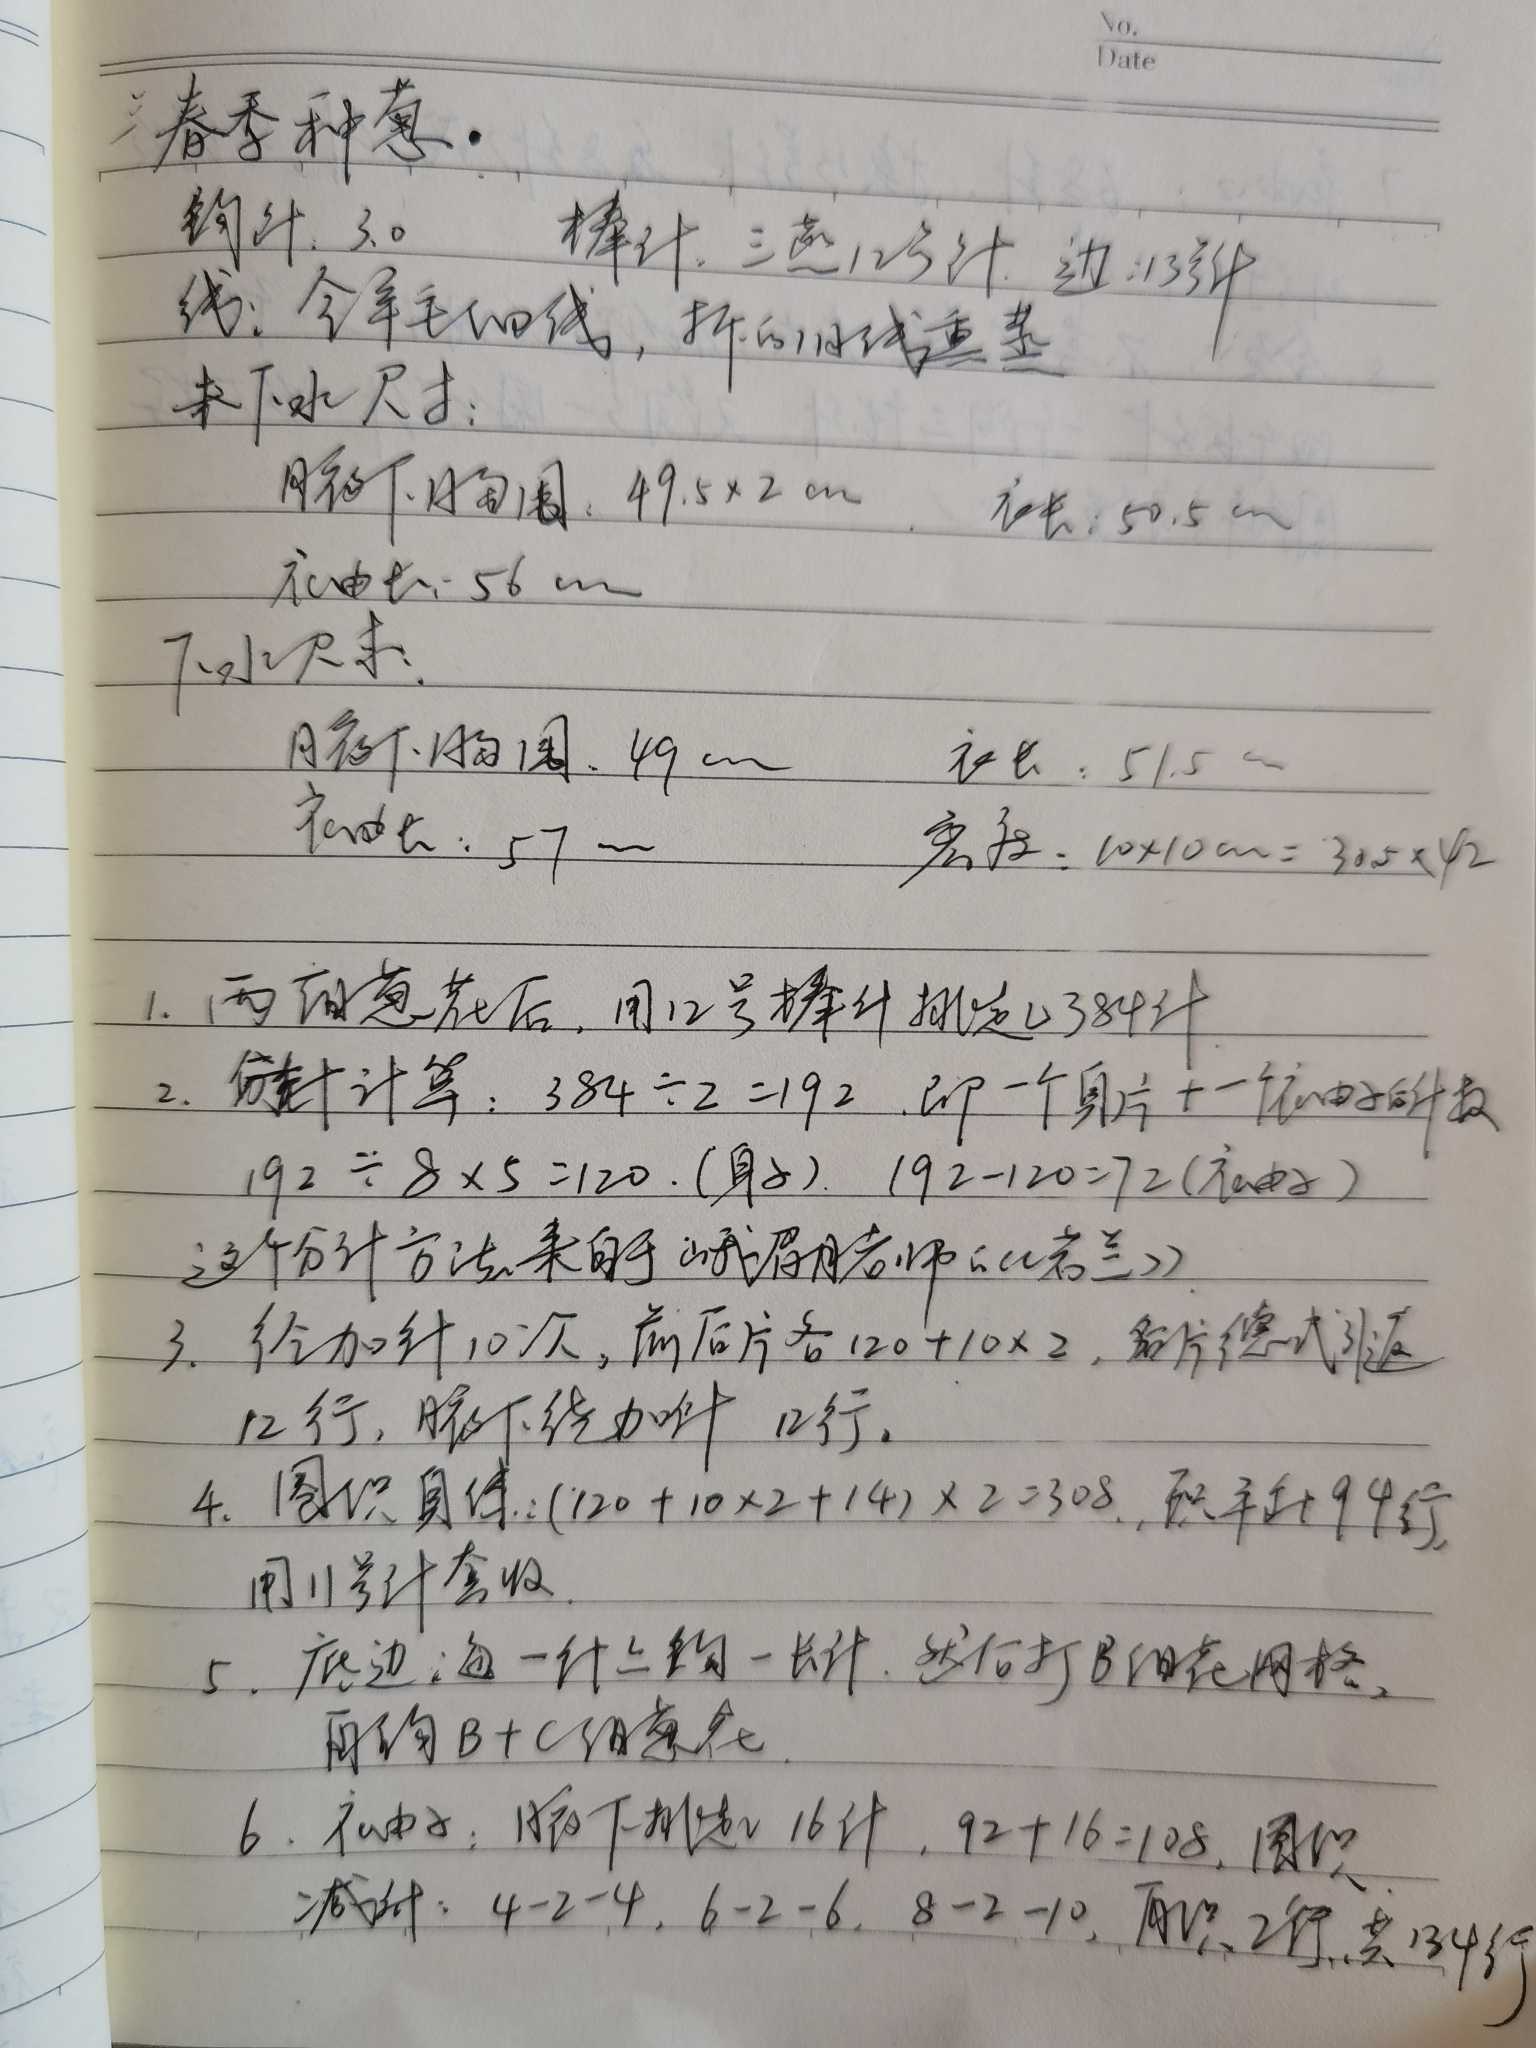 No.
Date
春季种葱.
钩针：3.0 棒针：三燕12号针 边：13号针
线：全羊毛细线，拆的旧线熏蒸
未下水尺寸：
腋下胸围：49.5×2cm 衣长：50.5cm
衣袖长：56cm
下水尺寸：
腋下胸围：49cm 衣长：51.5cm
衣袖长：57cm 密度：10×10cm=30.5×42
1. 两组葱花后，用12号棒针挑起384针
2. 分针计算：384÷2=192，即一个身片+一个衣袖子的针数
192÷8×5=120.(身子). 192-120=72(衣袖子)
这个分针方法来自于峨眉月老师的《岩兰》
3. 径加针10次，前后片各120+10×2，后片德式引返
12行，腋下绕加针 12行。
4. 圈织身体：(120+10×2+14)×2=308，织平针94行，
用11号针套收.
5. 底边：每一针上钩一长针，然后打B组花网格，
再钩B+C组葱花.
6. 衣袖子：腋下挑起16针，92+16=108，圈织
减针：4-2-4，6-2-6，8-2-10，再织2行，共134行